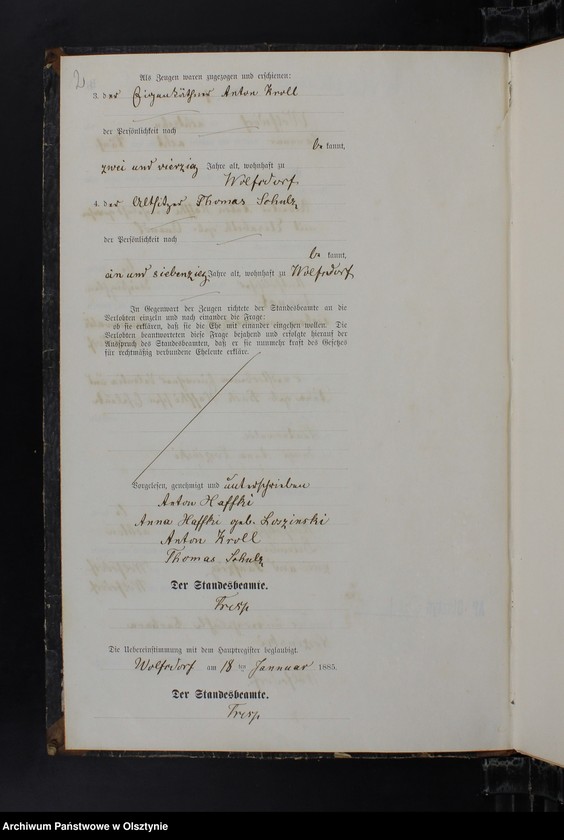 2
Als Zeugen waren zugezogen und erschienen:
3. der Eigenkäthner Anton Kroll
der Persönlichkeit nach
be kannt,
zwei und vierzig Jahre alt, wohnhaft zu
Wolfsdorf
4. der Altsitzer Thomas Schulz
der Persönlichkeit nach
be kannt,
ein und siebenzig Jahre alt, wohnhaft zu Wolfsdorf
In Gegenwart der Zeugen richtete der Standesbeamte an die
Verlobten einzeln und nach einander die Frage:
ob sie erklären, daß sie die Ehe mit einander eingehen wollen. Die
Verlobten beantworteten diese Frage bejahend und erfolgte hierauf der
Ausspruch des Standesbeamten, daß er sie nunmehr kraft des Gesetzes
für rechtmäßig verbundene Eheleute erkläre.
Vorgelesen, genehmigt und unterschrieben
Anton Haffki
Anna Haffki geb. Loszinski
Anton Kroll
Thomas Schulz
Der Standesbeamte.
Tresp
Die Uebereinstimmung mit dem Hauptregister beglaubigt
Wolfsdorf am 18 ten Januar 1885.
Der Standesbeamte.
Tresp
Archiwum Państwowe w Olsztynie